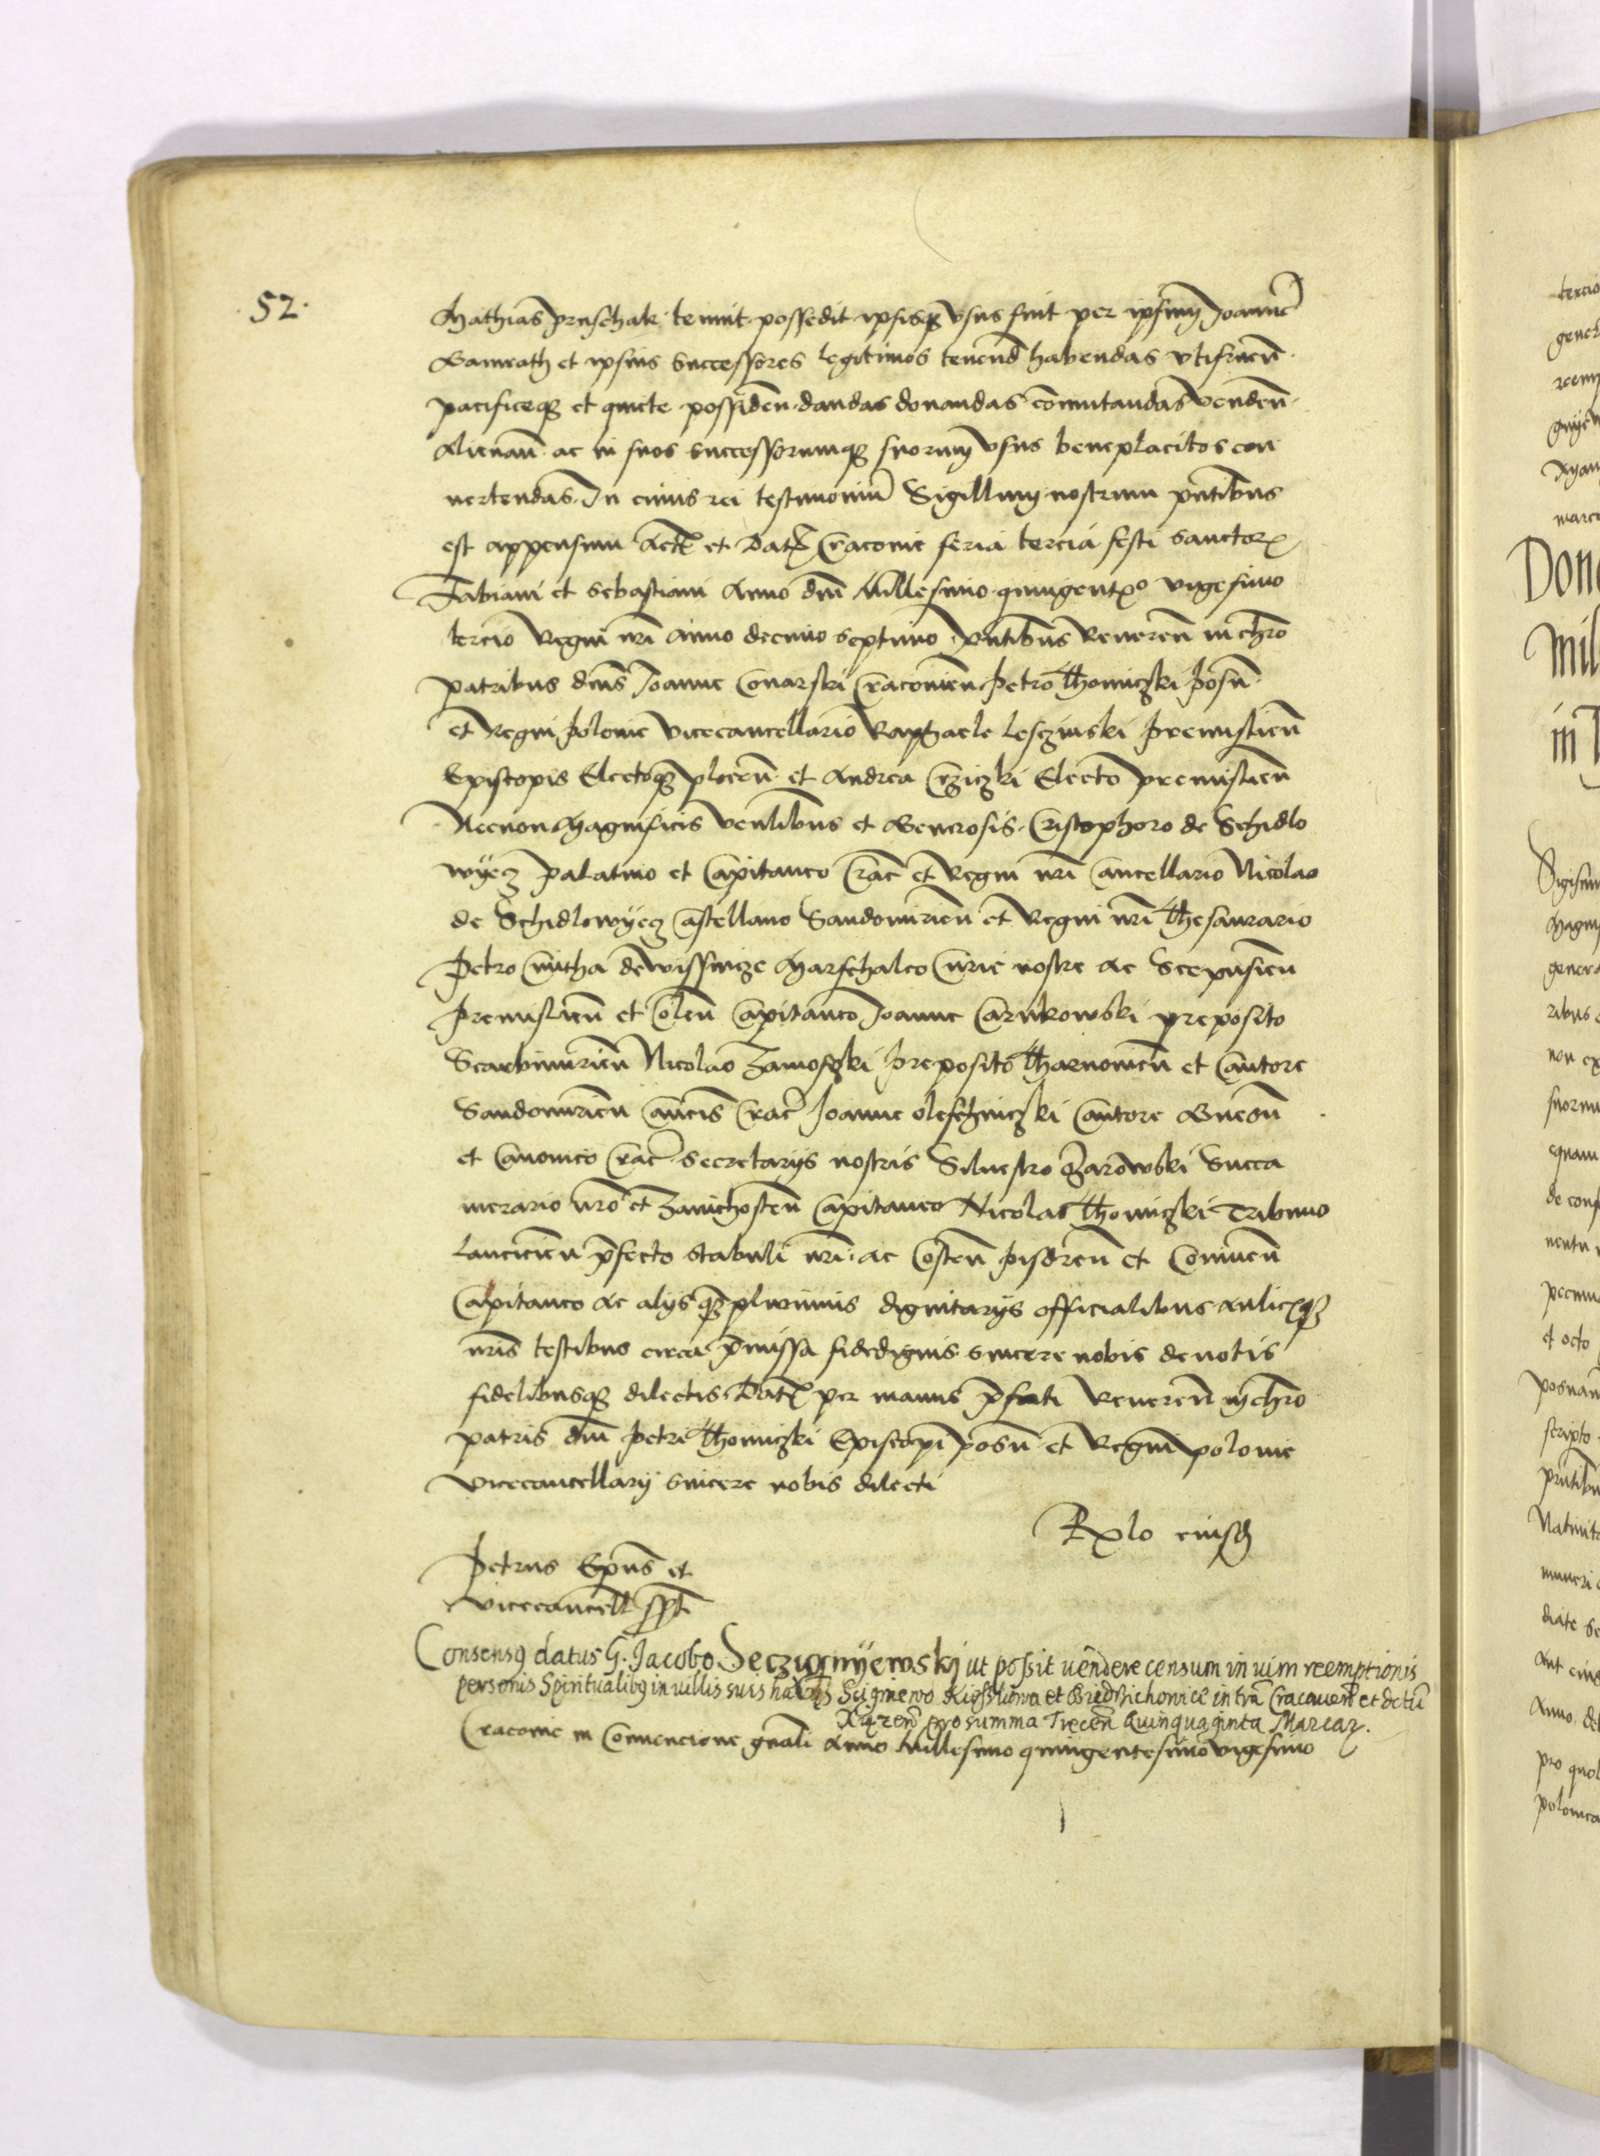 52.
Mathias pruschak tenuit possedit ipsisqз vsus fuit per ipsum Joannē
Banrath et ipsius Successores legitimos tenend habendas vtifruen̄
pacificeqз et quiete possiden̄ dandas donandas com̄utandas venden̄
Alienan̄ ac in suos successorumqз suorum vsus beneplacitos con
uertendas In cuius rei testimoniū Sigillum nostrum pn̄tibus
est appensum Act et Dat Cracouie feria tercia festi sanctor
Fabiani et Sebastiani Anno dn̄i Millesimo quingentᵒ vigesimo
tercio Regni nr̄i Anno decimo septimo Pn̄tibus Reueren̄ in chr̄o
patribus dn̄is Joanne Conarski Cracouien̄ Petro Thomiczki Posn̄
et Regni Polonie Vicecancellario Raphaele Lesczinski Premislien̄
Episcopis Electoqз plocen̄ et Andrea Crziczki Electo premislien̄
Necnon Magnificis Venlibus et Generosis Cristophoro de Schidlo
wyecz Palatino et Capitaneo Crac̄ et Regni nr̄i Cancellario Nicolao
de Schidlowyecz Castellano Sandomirien̄ et Regni nr̄i Thesaurario
Petro Cmitha de wissnicze Marschalco Curie nostre ac Scepusien̄
Premislien̄ et Colen̄ Capitaneo Joanne Carnkowski preposito
Scarbimirien̄ Nicolao Zamoszki Preposito Tharnouien̄ et Cantore
Sandomirien̄ Can̄cis Crac̄ Joanne oleschniczki Cantore Gnesn̄
et Canonico Crac̄ Secretarys nostris Siluestro Ozarowski Succa
merario nr̄o et Zawichosten̄ Capitaneo Nicolao Thomiczki Tribuno
Lancicien̄ p̄fecto stabuli nr̄i ac Costen̄ Pisdren̄ et Coninen̄
Capitaneo Ac alys qз plurimis dignitarys officialibus Aulicqз
nr̄is testibus circa p̄missa fidedignis sincere nobis deuotis
fidelibusqз dilectis Dat per manus p̄fati Reueren̄ in chr̄o
patris dn̄i Petri Thomiczki Episcopi Posn̄ et Regni polonie
Vicecancellary sincere nobis dilecti
Rlo eiusd
Petrus Ep̄us et
Vicecancell sspt
Consensꝰ datus G. Jacobo Secziginyewskj ut possit vendere censum in uim reemptionis
personis Spiritualibꝰ in villis suis in tr̄a Cracouien̄ et
pro summa Trecen̄ Quinquaginta Marcar.
Cracouie in Conuencione gn̄ali Anno Millesimo quingentesimo vigesimo